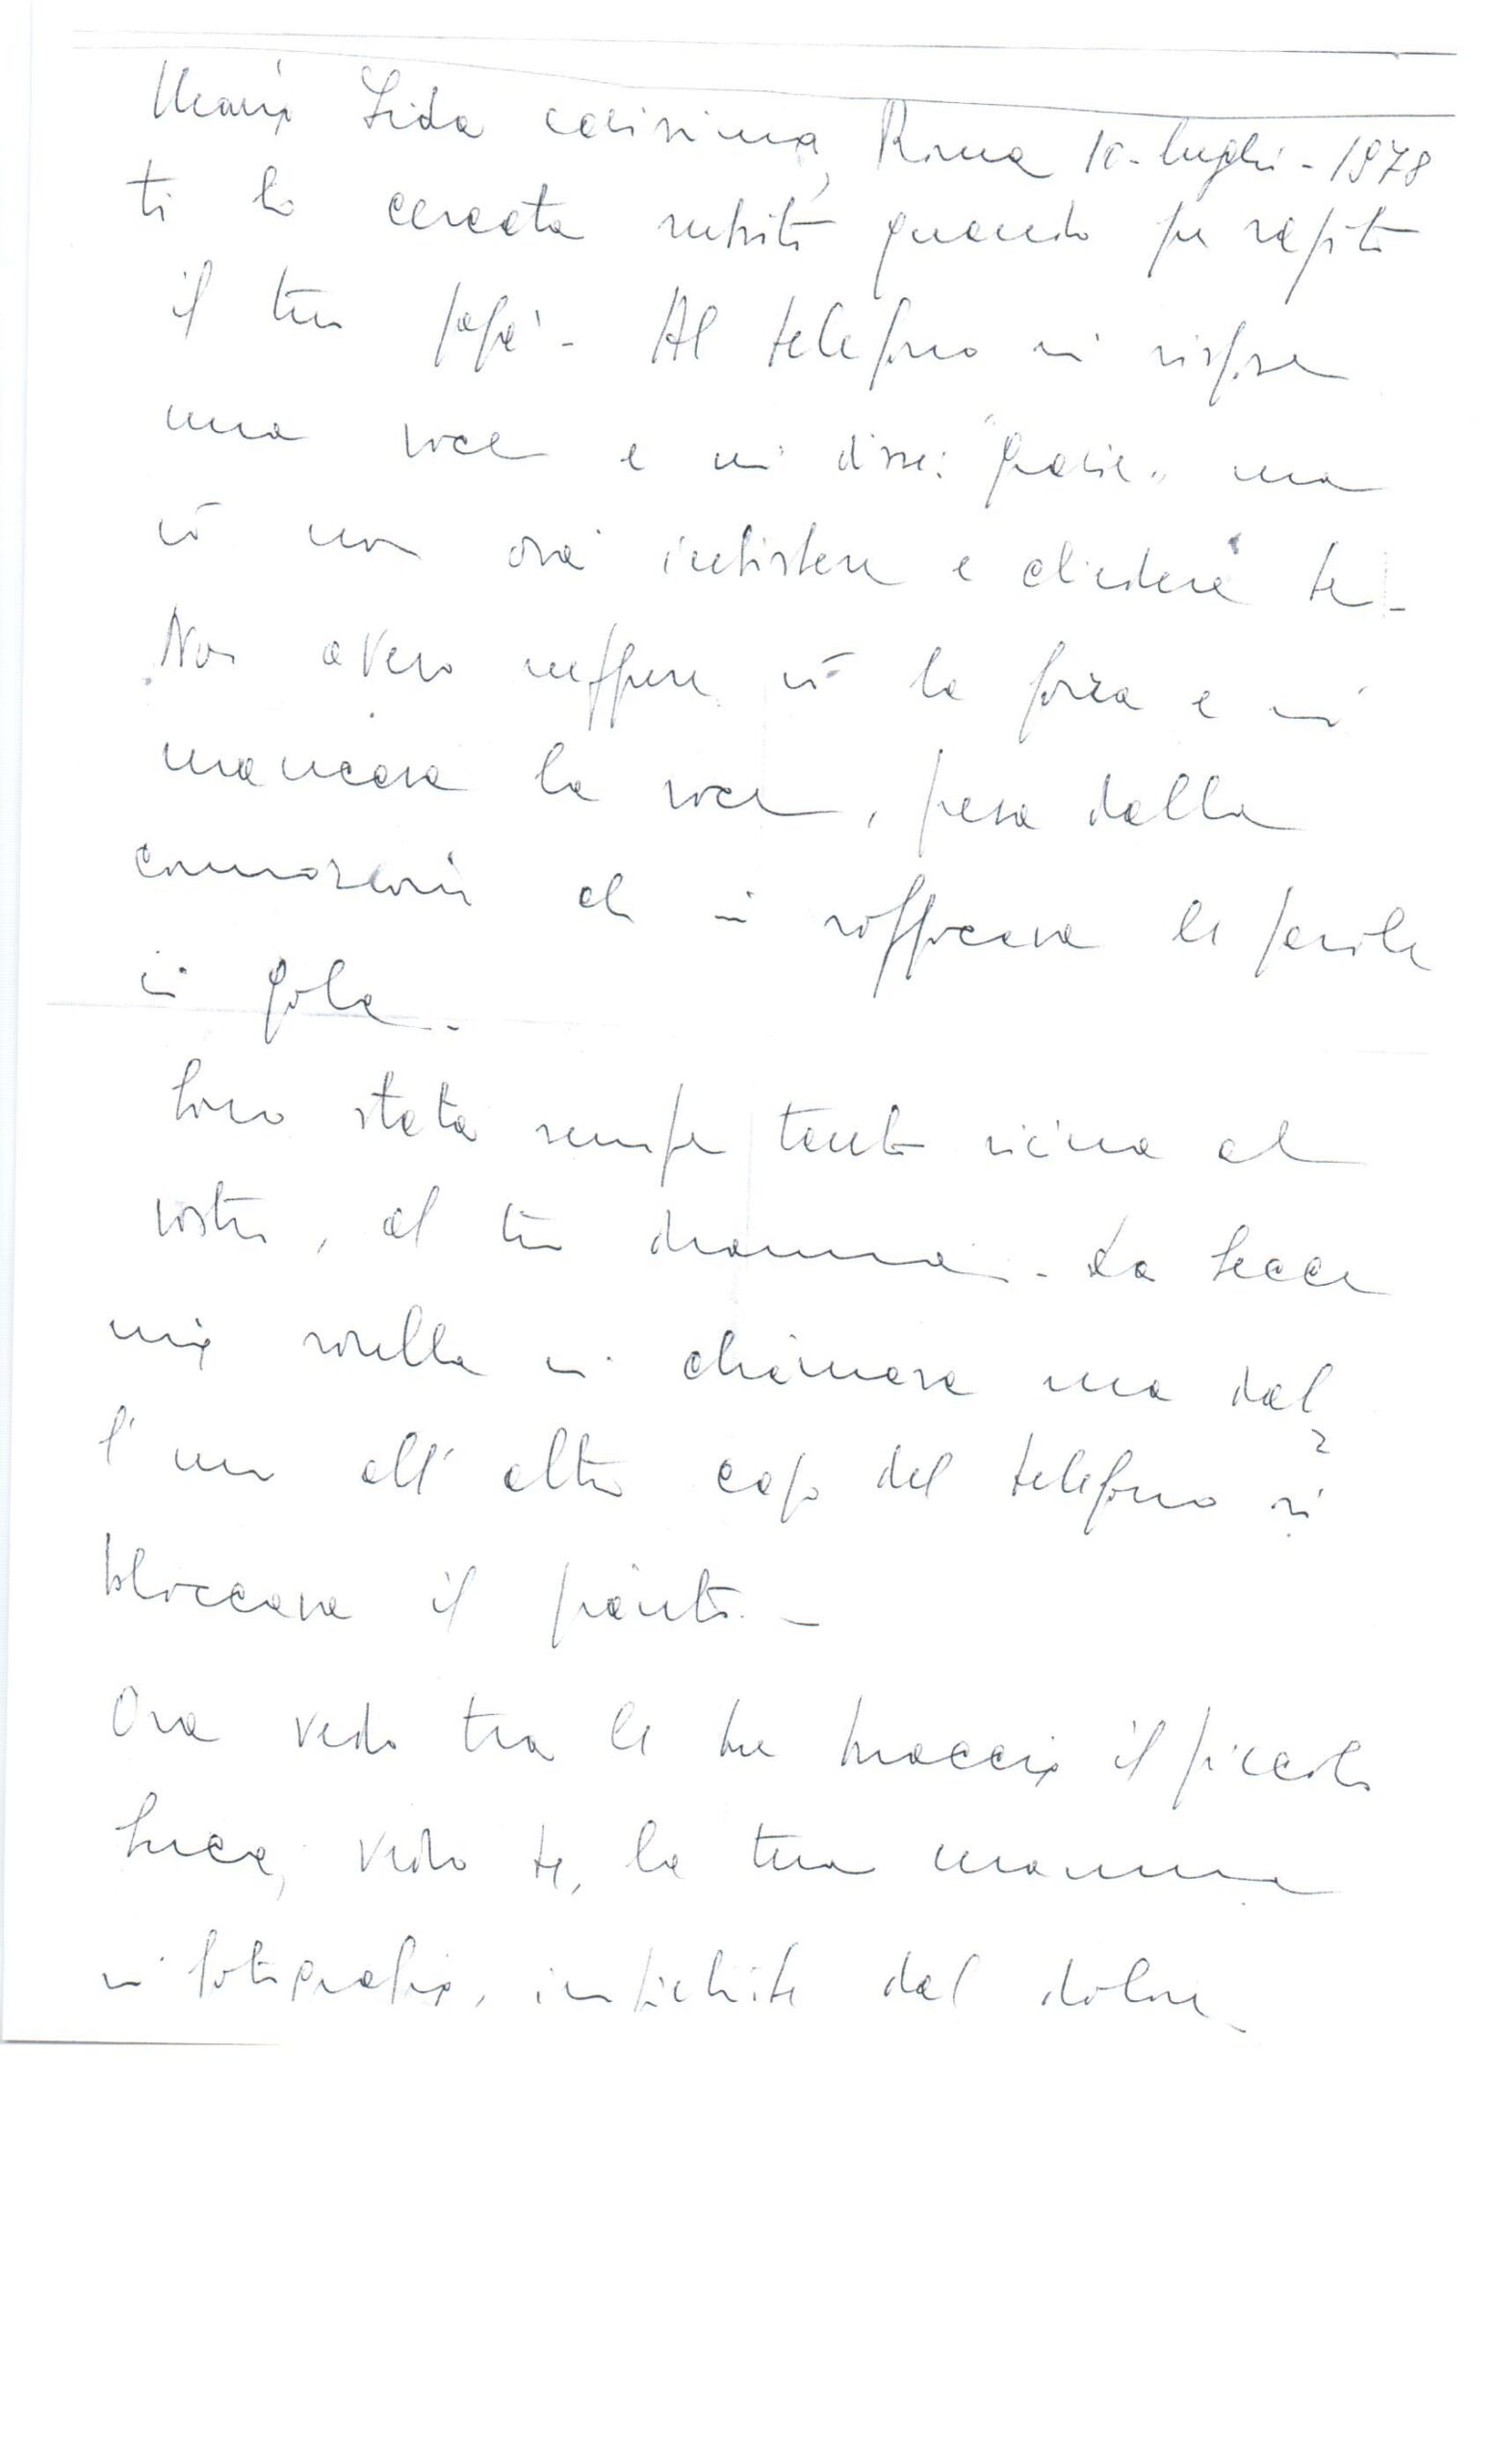 Maria Fida carissima, Roma 10-luglio-1978
ti ho cercata subito quando fu rapito
il tuo papà - Al telefono mi rispose
una voce e mi disse: "grazie" ma
io non osai insistere e chiedere te -
Non avevo neppure io la forza e mi
mancava la voce, presa dalla
commozione che mi soffocava le parole
in gola -
Sono stata sempre tanto vicina al
vostro, al tuo dramma - Da Lecce
mia sorella mi chiamava ma dal
l'uno all'altro capo del telefono si
bloccava il pianto. -
Ora vedo tra le tue braccia il piccolo
Luca, vedo te, la tua mamma
in fotografia, impietrite dal dolore